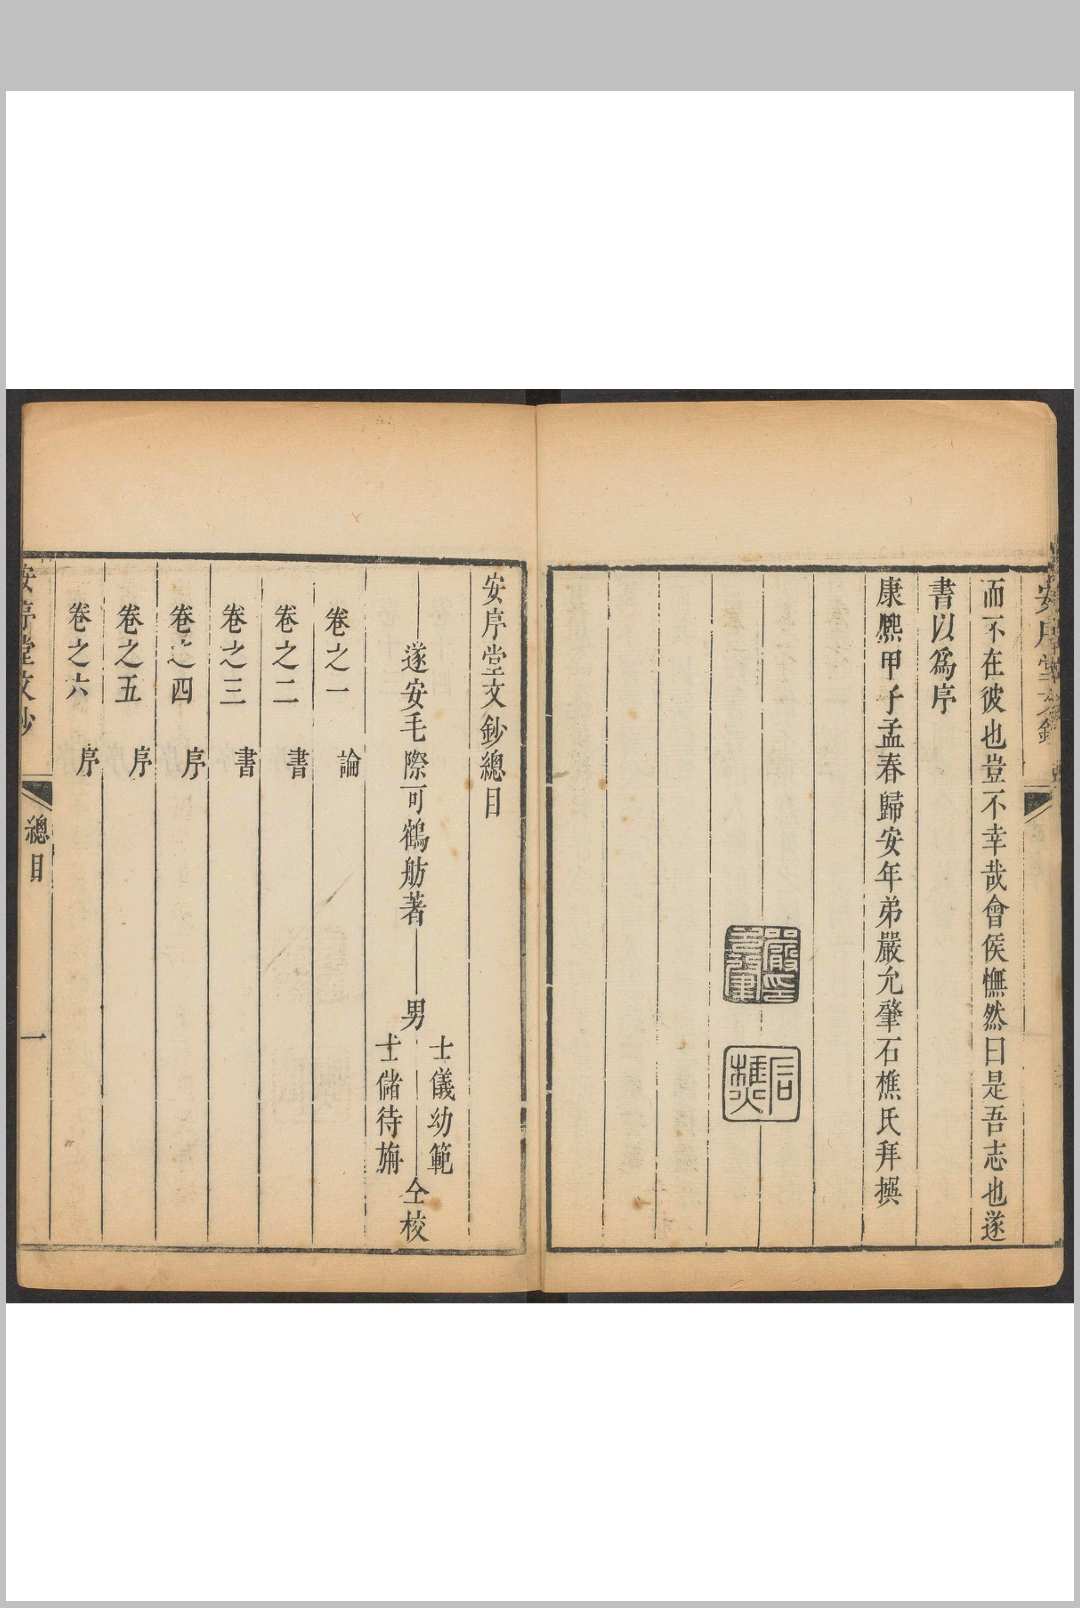 而不在彼也豈不幸哉會侯憮然曰是吾志也遂
書以為序
康熈甲子孟春歸安年弟嚴允肇石樵氏拜撰
安序堂文鈔總目
遂安毛際可鶴舫著 男
士儀幼範
士儲待旃
仝校
卷之一 論
卷之二 書
卷之三 書
卷之四 序
卷之五 序
卷之六 序
總目 一